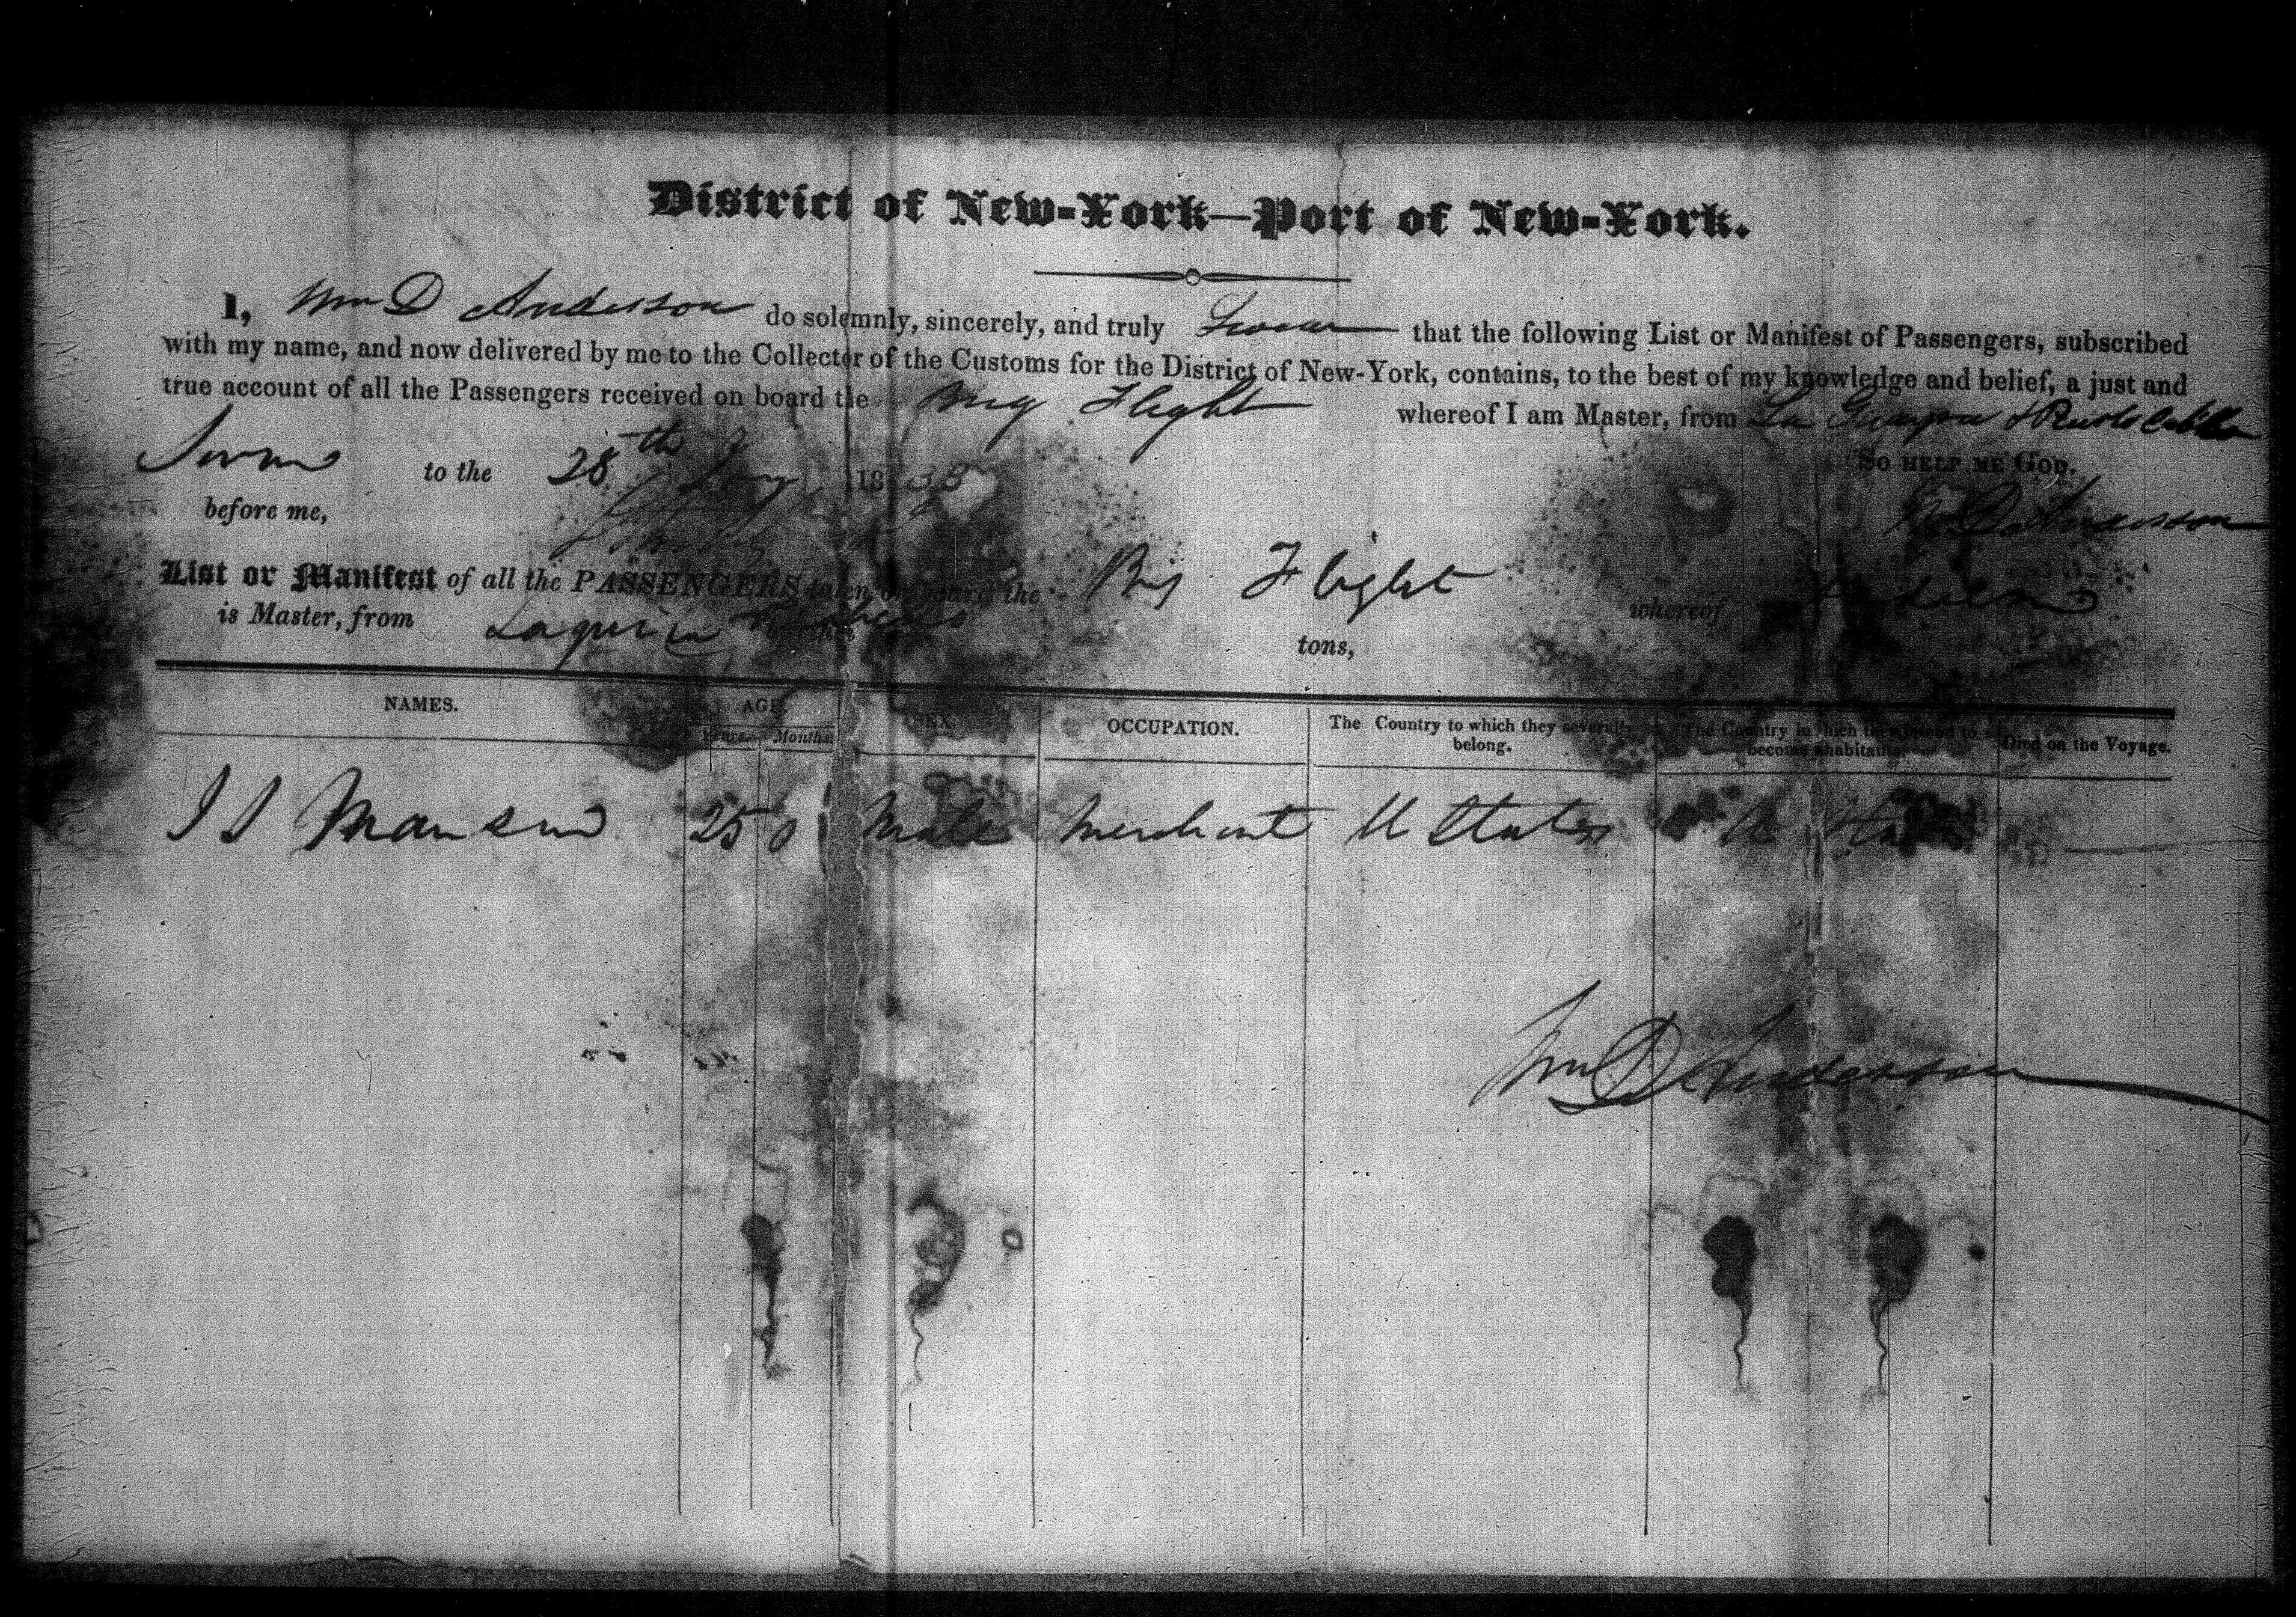 District of New-York—Port of New-York.
I, Wm D Anderson do solemnly, sincerely, and truly Swear that the following List or Manifest of Passengers, subscribed
with my name, and now delivered by me to the Collector of the Customs for the District of New-York, contains, to the best of my knowledge and belief, a just and
true account of all the Passengers received on board the Brig Flight whereof I am Master, from La Guayra & Puerto Cabello
So help me God.
Sworn to the 28th Jany 1838
before me,
Wm D Anderson
List or Manifest of all the PASSENGERS taken on board the Brig Flight whereof
is Master, from Laguira burthen tons,
NAMES. AGE. SEX. OCCUPATION. The Country to which they severally belong. The Country in which they intend to become inhabitants. Died on the Voyage.
Years. Months.
25 0 Male Merchant U States U States
Wm D Anderson